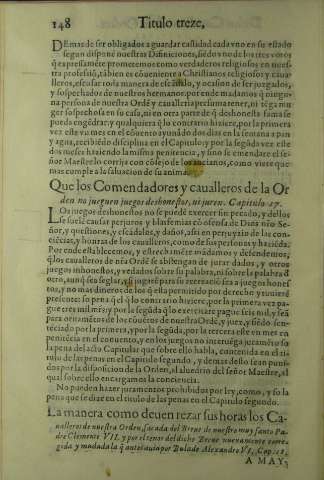 148 Titulo treze,
DEmas de ser obligados a guardar castidad cada vno en su estado
segun dispone nuestras Difiniciones, siẽdo vno de los tres votos
q̃ expressamẽte prometemos como verdaderos religiosos en nues-
tra professiõ, tãbien es cõueniente a Christianos religiosos y caua-
lleros, escusar toda manera de escãdalo, y ocasion de ser juzgados,
y sospechados de nuestros hermanos, por ende mãdamos q̃ ningu-
na persona de nuestra Ordẽ y caualleria presuma tener, ni tẽga mu
ger sospechosa en su casa, ni en otra parte de q̃ deshonesta fama se
pueda engẽdrar: y qualquiera q̃ lo contrario hiziere, por la primera
vez este vn mes en el cõuento ayunãdo dos dias en la semana a pan
y agua, recibiẽdo disciplina en el Capitulo: y por la segũda vez este
dos meses haziendo la misma penitencia, y sino se emendare el se-
ñor Maestre lo corrija con cõsejo de los ancianos, como viere que
mas cumple a la saluacion de su anima.
Que los Comendadores y caualleros de la Or
den no jueguen juegos deshonestos, ni juren. Capitulo .27.
LOs juegos deshonestos no se puedẽ exercer sin pecado, y dellos
se suelẽ causar perjuros y blasfemias cõ ofensa de Dios nřo Se-
ñor, y questiones, y escãdalos, y daños, assi en perjuyzio de las con-
ciẽcias, y honras de los caualleros, como de sus personas y haziẽda.
Por ende establecemos, y estrechamẽte mãdamos y defendemos,
q̃ los caualleros de nřa Ordẽ se abstengan de jurar dados, y otros
juegos inhonestos, y vedados sobre su palabra, ni sobre la palabra d̃
otro, aunq̃ sea seglar,
nos, y no mas dineros de los q̃ esta permitido por derecho y tuuierẽ
presente: so pena q̃ el q̃ lo contrario hiziere, por la primera vez pa-
gue tres mil mřs: y por la segũda q̃ lo exerciere pague seis mil, y seã
para ornamẽtos de los cõuẽtos de nuestra Ordẽ, y juez, y siẽdo sen-
tẽciado por la primera, y por la segũda, por la tercera este vn mes en
penitẽcia en el conuento, y en los juegos no interuẽga juramẽto so
la pena del acto Capitular que sobre ello habla, contenida en el ti-
tulo de las penas en el Capitulo segundo, y demas desto sean puni-
dos por la disposicion de la Orden, al aluedrio del señor Maestre, al
qual sobre ello encargamos la conciencia.
No pueden hazer juramentos prohibidos por ley, como, y so la
pena que se dize en el titulo de las penas en el Capitulo segundo.
La manera como deuen rezar sus horas los Ca-
ualleros de nuestra Orden, sacada del Breue de nuestro muy santo Pa-
dre Clemente VII. y por el tenor del dicho Breue nueuamente corre-
gida y mudada la q̃ antes auia por Bula de Alexandro VI. Cap. 28.
A MAY